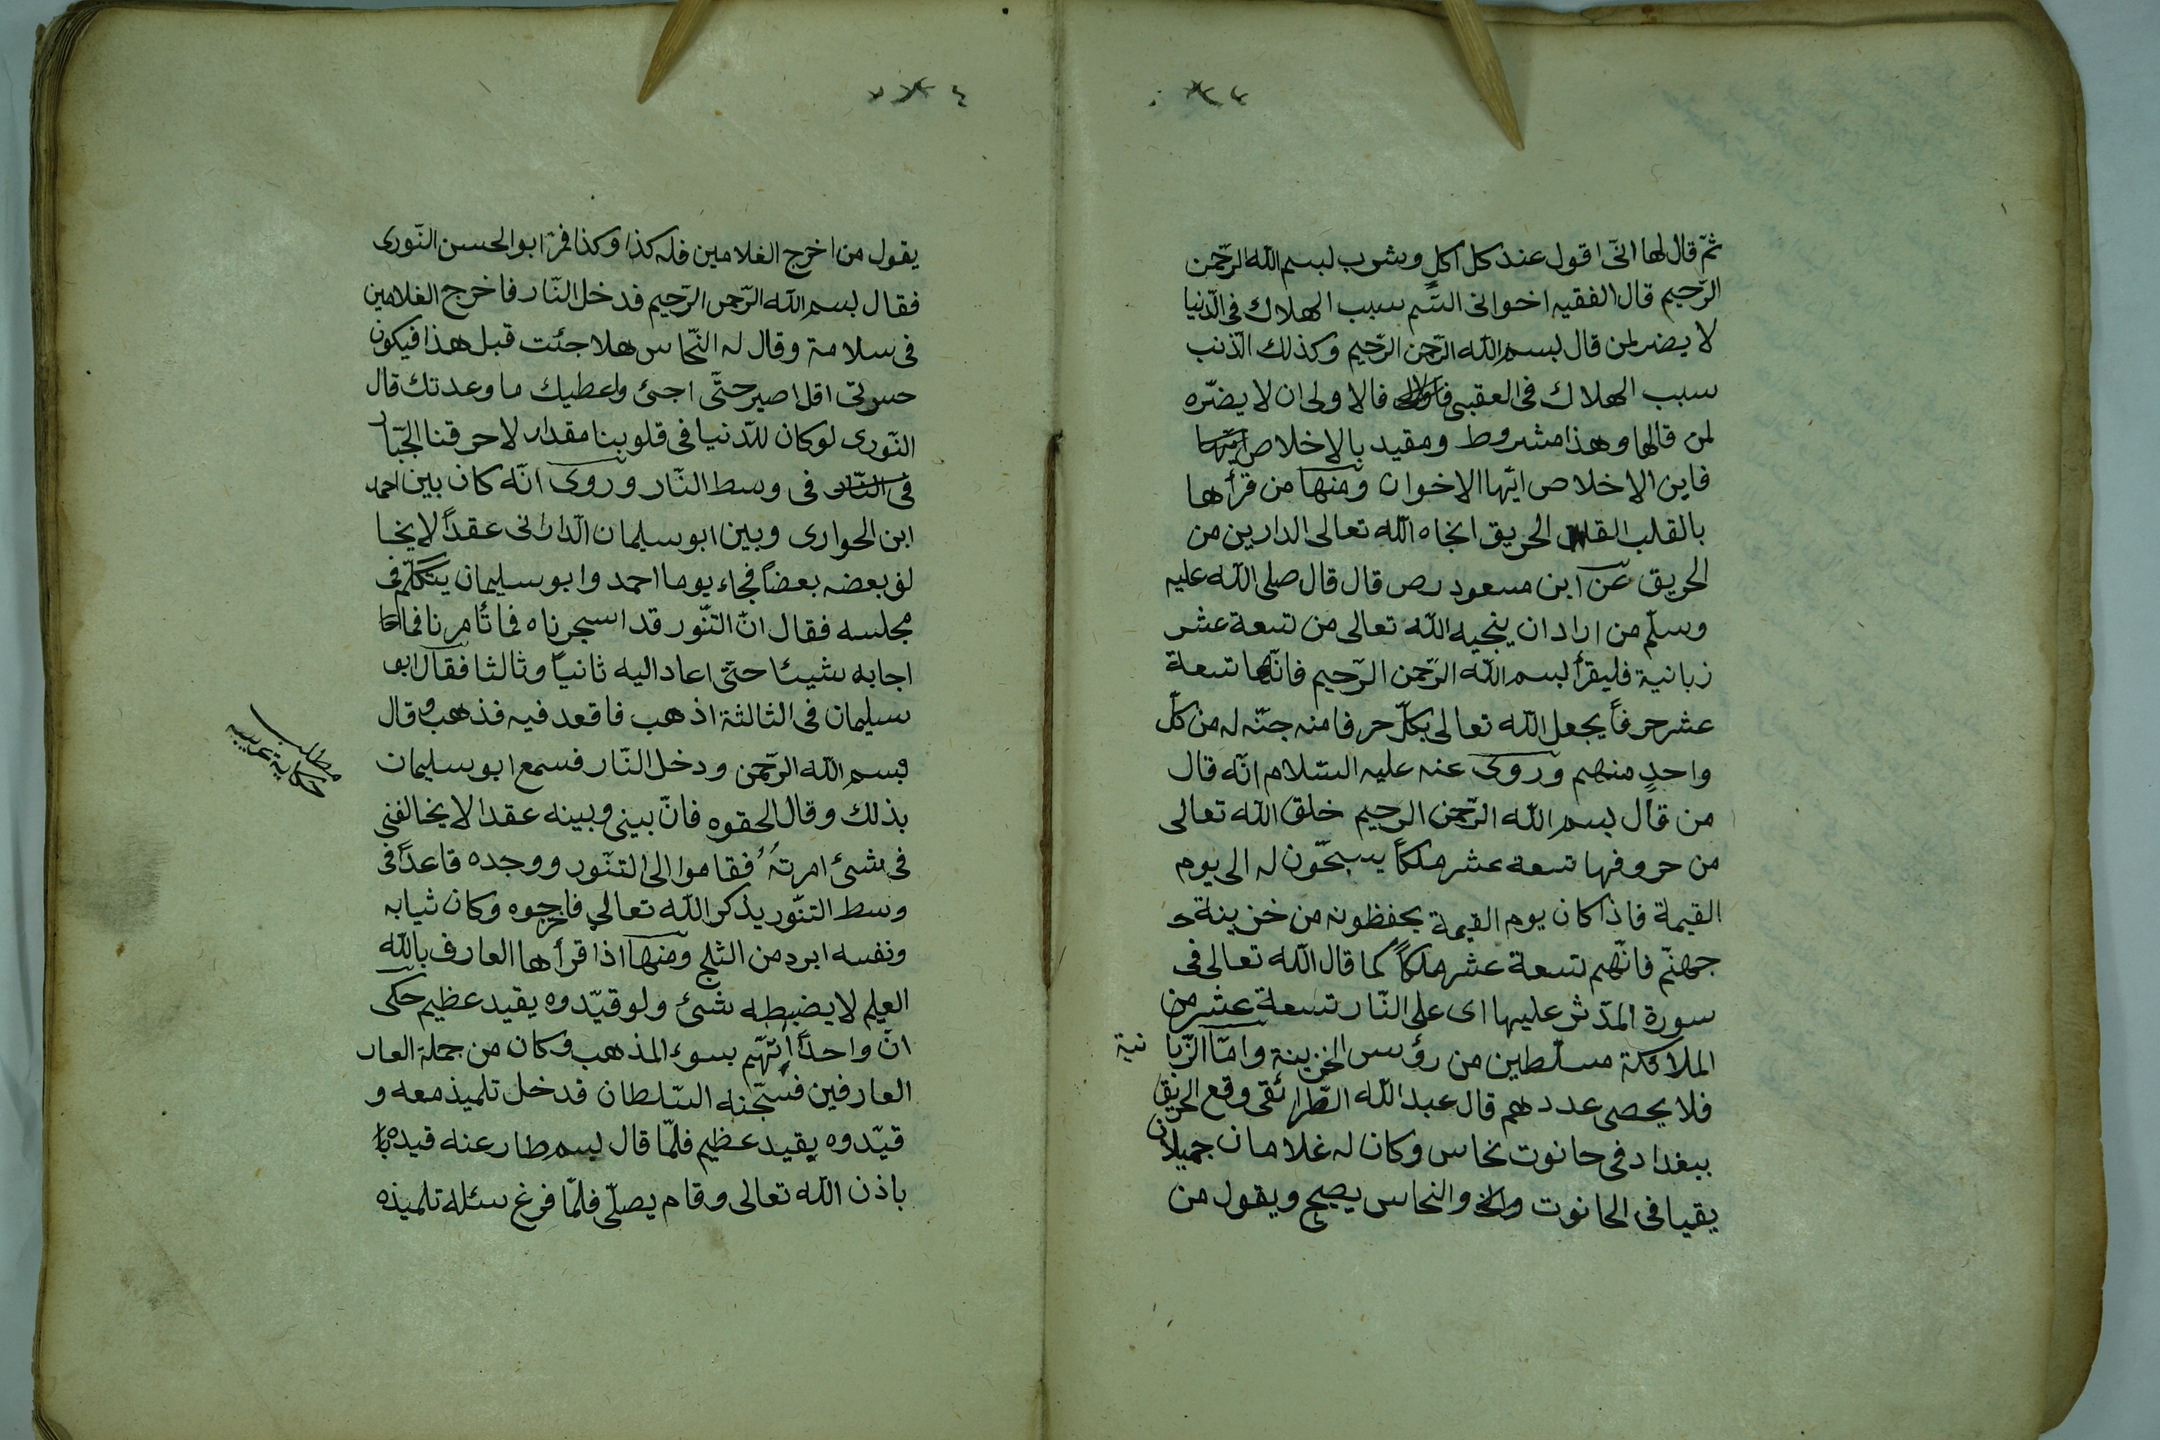 ثمّ قال لها انّى اقول عند كل اكلٍ وشرب لبسم الله الرحمن
الرّحيم قال الفقيه اخوانى السّم سبب الهلاك فى الدّنيا
لا يضر لمن قال بسم الله الرحمن الرّحيم وكذلك الذّنب
سبب الهلاك فى العقبى فالاولى ان لا يضرّه
لمن قالها وهذا مشروط ومقيد بالاخلاص ايّها
فاين الاخلاص ايّها الاخوان ومنها من قرأها
بالقلب الحريق انجاه الله تعالى الدارين من
الحريق عن ابن مسعود رص قال قال صلى الله عليه
وسلّم من اراد ان ينجيه الله تعالى من تسعة عشر
زبانية فليقرأ بسم الله الرّحمن الرّحيم فانّها تسعة
عشر حرفاً يجعل الله تعالى بكلّ حرفا منه جنّه له من كلّ
واحدٍ منهم وروى عنه عليه السّلام انّه قال
من قال بسم الله الرّحمن الرحيم خلق الله تعالى
من حروفها تسعة عشر ملكاً يسبحّون له الى يوم
القيمة فاذا كان يوم القيمة يحفظونه من خزينة
جهنّم فانّهم تسعة عشر ملكاً كما قال الله تعالى فى
سورة المدّثر عليها اى على النّار تسعة عشر من
الملائكة مسلّطين من رؤس الخزينة وامّا الزّبا نية
فلا يحصى عددهم قال عبد الله الطّرائقى وقع الحريق
ببغداد فى حانوت نخاس وكان له غلامان جميلان
يقيا فى الحانوت والنحاس يصيح ويقول من
يقول من اخرج الغلامين فله كذا وكذا فمرّ ابو الحسن النّورى
فقال بسم الله الرّحمن الرّحيم فدخل النّار فاخرج الغلامين
فى سلامة وقال له النّخاس هلا جئت قبل هذا فيكون
اصير حتّى اجئ واعطيك ما وعدتك قال
النّورى لو كان للدّنيا فى قلوبنا مقدار لاحرقنا الجبّار
فى النّار فى وسط النّار وروى انّه كان بين احمد
ابن الحوارى وبين ابو سليمان الدّارانى عقداً لا يخا
لف بعضه بعضاً فجاء يوما احمد وابو سليمان يتكلّم فى
مجلسه فقال انّ التنّور قد اسجرناه فما تأمرنا فما
اجابه شيئا حتّى اعاد اليه ثانياً وثالثا فقال ابو
سليمان فى الثالثة اذهب فاقعد فيه فذهب وقال
بسم الله الرّحمن ودخل النّار فسمع ابو سليمان
بذلك وقال الحقوه فانّ بينى وبينه عقدا لا يخالفنى
فى شئ امرته فقاموا الى التنّور ووجده قاعداً فى
وسط التنّور يذكر الله تعالى فاخرجوه وكان ثيابه
ونفسه ابرد من الثلج ومنها اذا قرأها العارف بالله
العلم لا يضبطه شئ ولو قيّدوه بقيد عظيم حكى
انّ واحداً اتّهم بسوء المذهب وكان من جملة العار
العارفين فسجّنه السّلطان فدخل تلميذ معه و
قيّدوه بقيد عظيم فلمّا قال بسم طار عنه قيده
باذن الله تعالى وقام يصلّى فلمّا فرغ سئله تلميذه
مطلب
حكاية عجيبه